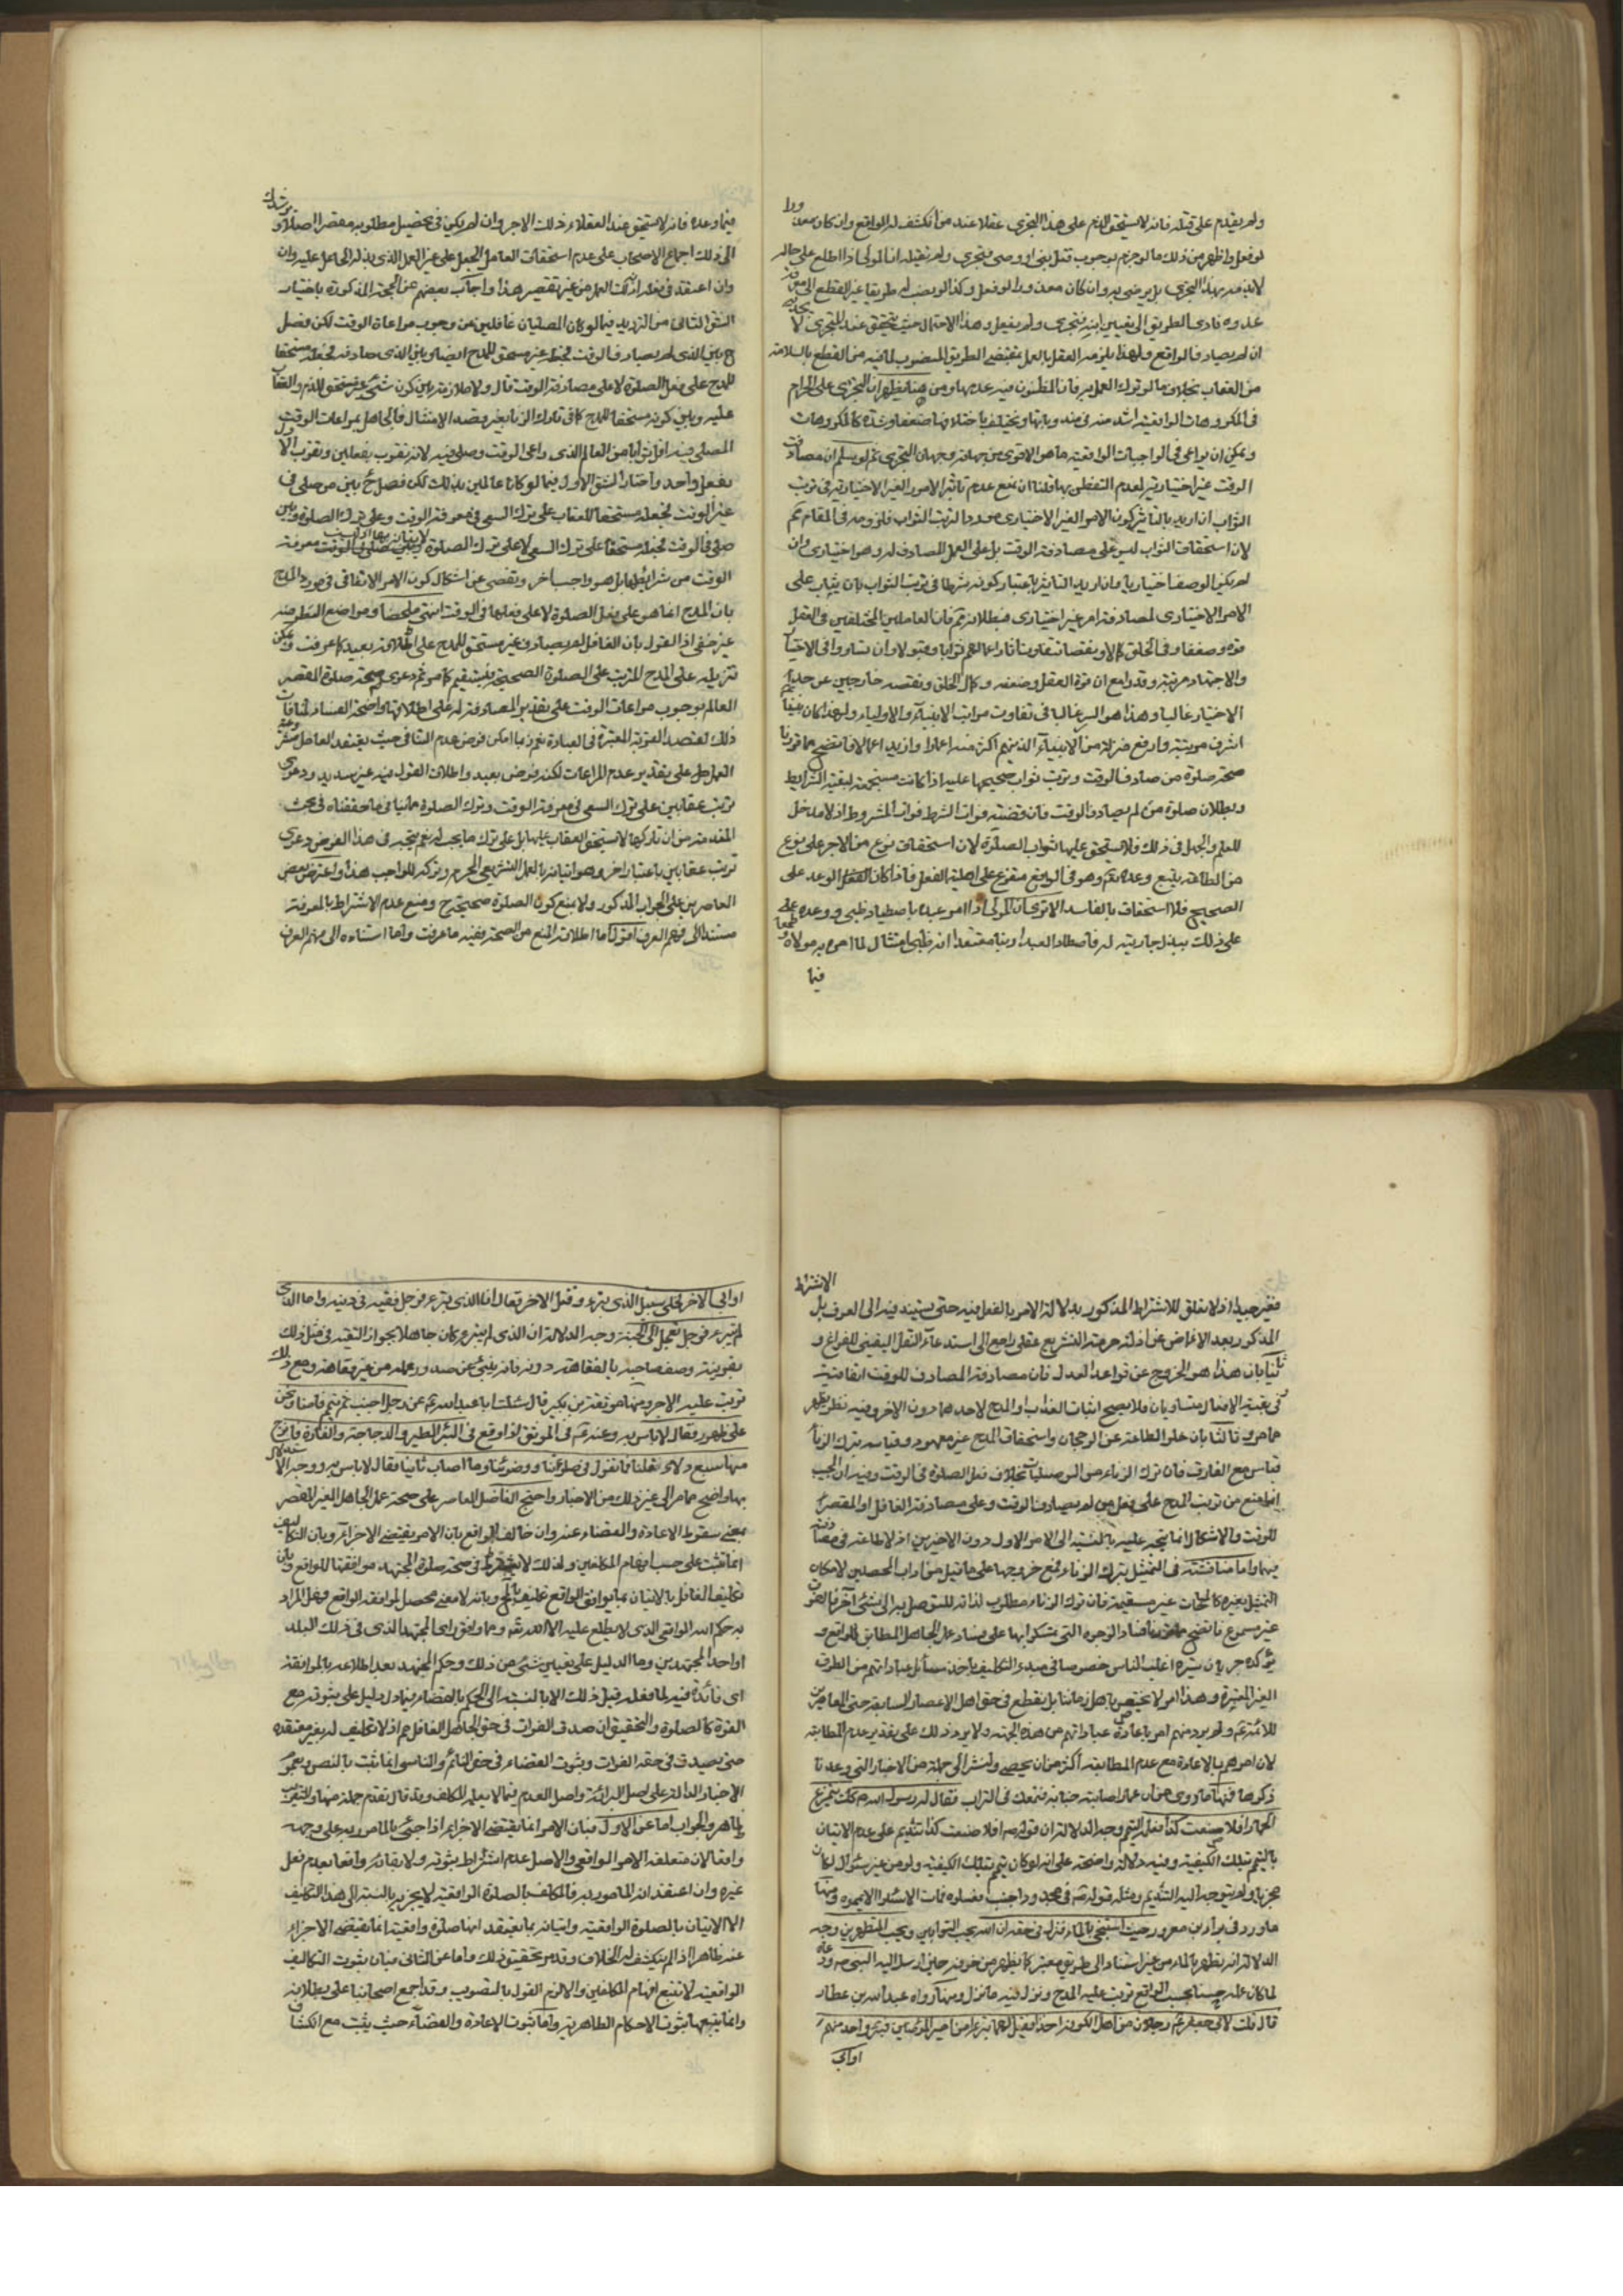 ولم يقدم على قتله فانه لا يستحق الذم على هذا التجرى عقلا عند من انكشف له الواقع وان كان معذورا
لو فعل واظهر من ذلك ما لو جزم بوجوب قتل نبى او وصى فتجرى ولم يقتله الا ترى ان المولى اذا اطلع على حاله
لا يذمه بهذا التجرى بل يرضى به وان كان معذورا لو فعل وكذا لو نصب له طريقا غير القطع الى معرفة
عدوه فادى الطريق الى تعيين ابنه فتجرى ولم يفعل وهذا الاحتمال حيث يتحقق عند المتجرى لا يجديه
ان لم يصادف الواقع ولهذا يلزمه العقل بالعمل بمقتضى الطريق المنصوب لما فيه من القطع بالسلامة
من العقاب بخلاف ما لو ترك العمل به فان المظنون فيه عدمها ومن هنا يظهر ان التجرى على الحرام
فى المكروهات الواقعية اشد منه فى مندوباتها ويختلف باختلافها ضعفا وشدة كالمكروهات
ويمكن ان يراعى فى الواجبات الواقعية ما هو الاقوى من جهاته وجهات التجرى ثم لو سلم ان مصادفة
الوقت غير اختيارية لعدم التفطن بها قلنا ان نمنع عدم تاثير الامور الغير الاختيارية فى ترتب
الثواب ان اريد بالتاثير كون الامر الغير الاختيارى موردا لترتب الثواب فلزومه فى المقام مم
لان استحقاق الثواب ليس على مصادفة الوقت بل على العمل المصادف له وهو اختيارى وان
لم يكن الوصف اختياريا وان اريد التاثير باعتبار كونه شرطا فى ترتب الثواب بان يثاب على
الامر الاختيارى لمصادفة امر غير اختيارى فبطلانه مم فان العاملين المختلفين فى العقل
قوة وضعفا وفى الخلق كمالا ونقصا يتفاوتان اعمالهم ثوابا وقبولا وان تساووا فى الاختيار
والاجتهاد مرتبة وقدرا مع ان قوة العقل وضعفه وكمال الخلق ونقصه خارجين عن حد
الاختيار غالبا وهذا هو السر غالبا فى تفاوت مراتب الانبياء والاولياء ولهذا كان نبينا
اشرف مرتبة وارفع منزلة من الانبياء الذين هم اكثر منه اعمارا وازيد اعمالا فاتضح مما قررنا
صحة صلوة من صادف الوقت وترتب ثواب صحيحها عليه اذا كانت مستجمعة لبقية الشرايط
وبطلان صلوة من لم يصادف الوقت فان قضية فوات الشرط فوات المشروط اذ لا مدخل
للعلم والجهل فى ذلك فلا يستحق عليها ثواب الصلوة لان استحقاق نوع من الاجر على نوع
من الطاعة يتبع وعده تعم وهو فى الواقع متفرع على اصلية الفعل فاذا كان الوعد على
الصحيح فلا استحقاق بالفاسد الا ترى ان المولى اذا امر عبده باصطياد ظبى ووعده
على ذلك ببذل جارية له فاصطاد العبد ارنبا معتقدا انه ظبى امتثالا لما امره به مولاه وطمعا
فيما
فيما وعده فانه لا يستحق عند العقلاء ذلك الاجر وان لم يكن فى تحصيل مطلوبه مقصرا اصلا ويرشدك
الى ذلك اجماع الاصحاب على عدم استحقاق العامل الجعل على غير العمل الذى بذله الجاعل عليه وان
وان اعتقد فى نفسه انه ذلك العمل من غير تقصير هذا واجاب بعضهم عن الحجة المذكورة باختيار
الشق الثانى من الترديد فيما لو كان المصليان غافلين عن وجوب مراعاة الوقت لكن فصل
ح بين الذى لم يصادف الوقت فجعله غير مستحق للمدح ايضا وبين الذى صادفه فجعله مستحقا
للمدح على فعل الصلوة لا على مصادفة الوقت قال ولا ملازمة بين كون شىء غير مستحق للذم والعقاب
عليه وبين كونه مستحقا للمدح كما فى تارك الزنا بغير قصد الامتثال فالجاهل بمراعات الوقت
المصلى فيه اقل ثوابا من العالم الذى راعى الوقت وصلى فيه لانه تقرب بفعلين وتقرب الاول
بفعل واحد واختار الشق الاول فيما لو كانا عالمين بذلك لكن فصل ح بين من صلى فى
غير الوقت فجعله مستحقا للعقاب على ترك السعى فى معرفة الوقت وعلى ترك الصلوة وبين من
صلى فى الوقت فجعله مستحقا على ترك السعى لا على ترك الصلوة لاتيانه بها اذ ليس معرفة
الوقت من شرايطها بل هو واجب اخر وتفصى عن اشكال كون الامر الاتفاقى فى مورد المدح
بان المدح انما هو على فعل الصلوة لا على فعلها فى الوقت انتهى ملخصا ومواضع النظر منه
غير خفى اذ القول بان الغافل الغير المصادف غير مستحق للمدح على اطلاقه بعيد كما عرفت ويمكن
تنزيله على المدح المترتب على الصلوة الصحيحة فيستقيم كما مر ثم دعوى صحة صلوة المقصر
العالم بوجوب مراعات الوقت على تقدير المصادفة له على اطلاقها واضحة الفساد لمنافاة
ذلك لقصد القربة المعتبرة فى العبادة نعم ربما امكن فرض عدم التنافى حيث يعتقد الغافل
الجاهل على تقدير عدم المراعات لكنه فرض بعيد واطلاق القول فيه غير سديد ودعوى
ترتب عقابين على ترك السعى فى معرفة الوقت وترك الصلوة ينافى ما حققناه فى بحث
المقدمة من ان تاركها لا يستحق العقاب عليها بل على ترك ما يجب له نعم يتجه فى هذا الفرض دعوى
ترتب عقابين باعتبار اخر وهو اتيانه بالعمل التشريعى المحرم وتركه للواجب هذا واعترض بعض
المعاصرين على الجواب المذكور ولا بمنع كون الصلوة صحيحة ح ومنع عدم الاشتراط بالمعرفة
مستندا الى فهم العرف اقول اما اطلاقه المنع من الصحة ففيه ما عرفت واما استناده الى فهم العرف
الاشتراط
فغير جيد اذ لا تعلق للاشتراط المذكور بدلالة الامر بالفعل فيه حتى يستند فيه الى العرف بل
المذكور بعد الاغماض عن ادلة حرمة التشريع عقلى راجع الى استدعاء الشغل اليقينى للفراغ و
ثانيا بان هذا هو الخروج عن قواعد العدل فان مصادفة المصادف للوقت اتفاقية
فى بقية الافعال متساويان فلا يصح اثبات العذاب والمدح لاحدهما دون الاخر وفيه نظر يظهر
مما مر وثالثا بان خلو الطاعة عن الرجحان واستحقاق المدح غير معهود وقياسه بترك الزنا
قياس مع الفارق فان ترك الزناء من التوصليات بخلاف فعل الصلوة فى الوقت وفيه ان المجيب
انما منع من ترتب المدح على فعل من لم يصادف الوقت وعلى مصادفة الغافل او المقصر
للوقت والاشكال انما يتجه عليه بالنسبة الى الامر الاول دون الاخيرين اذ لا طاعة فى مصادفة
فيهما واما مناقشته فى التمثيل بترك الزناء فمع خروجها على ما قيل من اداب المحصلين لامكان
التمثيل بغيره كالمستحبات غير مستقيمة فان ترك الزناء مطلوب لذاته لا للتوصل به الى شىء آخر
غير مسموع فاتضح مما قررنا فساد الوجوه التى تمسكوا بها على فساد عمل الجاهل المطابق للواقع و
يؤكده جريان سيرة اغلب الناس خصوصا فى مبدء التكليف باخذ مسائل عباداتهم من الطرق
الغير المعتبرة وهذا امر لا يختص باهل زماننا بل نقطع فى حق اهل الاعصار السابقة حتى المعاصرين
للائمة ع ولم يرد منهم امر باعادة عباداتهم من هذه الجهة ولا يرد ذلك على تقدير عدم المطابقة
لان امرهم بالاعادة مع عدم المطابقة اكثر من ان يحصى ولنشر الى جملة من الاخبار التى وعدنا
ذكرها فمنها ما روى من ان عمارا اصابته جنابة فتمعك فى التراب فقال له رسول الله ص كذلك يتمرغ
الحمار افلا صنعت كذا فعلمه التيمم وجه الدلالة ان قوله ص افلا صنعت كذا تنديم على عدم الاتيان
بالتيمم بتلك الكيفية وفيه دلالة واضحة على انه لو كان تيمم بتلك الكيفية ولو من غير سئوال لكان
مجزيا ولم يتوجه اليه التنديم ومثله قوله ص فى مجدور اجنب فغسلوه فمات الا سئلوا الا يمموه ومنها
ما ورد فى براء بن معرور حيث استنجى بالماء فنزل فى حقه ان الله يحب التوابين ويحب المتطهرين وجه
الدلالة انه تطهر بالماء من غير استناد الى طريق معتبر كما يظهر من خوفه حين ارسل اليه النبى ص ودعاه
لما كان عمله حسنا بحسب الواقع ترتب عليه المدح ونزل فيه ما نزل ومنها رواه عبد الله بن عطاء
قال قلت لابى جعفر ع رجلان من اهل الكوفة اخذا فقيل لهما ابرءا من امير المؤمنين فبرء واحد منهما
وابى
وابى الاخر فخلى سبيل الذى برء وقتل الاخر فقال اما الذى برء فرجل فقيه فى دينه واما الذى
لم يبرء فرجل تعجل الى الجنة وجه الدلالة ان الذى لم يبرء كان جاهلا بجواز التقية فى مثل ذلك
بقرينة وصف صاحبه بالفقاهة دونه فانه ينبئ عن صدور عمله من غير فقاهة ومع ذلك
ترتب عليه الاجر ومنها موثقة بن بكير قال سئلت ابا عبد الله ع عن رجل اجنب ثم تيمم فامنا ونحن
على طهور فقال لا باس به وعنه ع فى الموثق اذا وقع فى البئر الطير والدجاجة والفارة فانزح
منها سبع دلاء قلنا فما تقول فى صلوتنا ووضوئنا وما اصاب ثيابنا فقال لا باس به ووجه الاستدلال
بها واضح مما مر الى غير ذلك من الاخبار واحتج الفاضل المعاصر على صحة عمل الجاهل الغير المقصر
بمعنى سقوط الاعادة والقضاء عنه وان خالف الواقع بان الامر يقتضى الاجزاء وبان التكاليف
انما تثبت على حسب افهام المكلفين ولذلك لا يشترط فى صحة صلوة المجتهد موافقتها للواقع وبان
تكليف الغافل بالاتيان بما يوافق الواقع تكليف بالمحال وبانه لا معنى محصل لموافقة الواقع فهل المراد
به حكم الله الواقعى الذى لا يطلع عليه الا الله تعم وما وافق راى المجتهد الذى فى ذلك البلد
او احد المجتهدين وما الدليل على تعيين شىء من ذلك وحكم المجتهد بعد اطلاعه بالموافقة
اى فائدة فيه لما فعله قبل ذلك الا بالنسبة الى الحكم بالقضاء فيما دل دليل على ثبوته مع
الفوة كالصلوة والتحقيق ان صدق الفوات فى حق الجاهل الغافل مم اذ لا تكليف له بغير معتقده
حتى يصدق فى حقه الفوات وثبوت القضاء فى حق النائم والناسى انما ثبت بالنص وبعموم
الاخبار الدالة على اصل البرائة واصل العدم فيما لا يعلمه المكلف وقد قال تقدم جملة منها والتقريب
ظاهر والجواب اما عن الاول فبان الامر انما يقتضى الاجزاء اذا جىء بالمامور به على وجهه
واقعا لان متعلقه الامر الواقعى والاصل عدم اشتراط ثبوته ولا بقائه واقعا بعدم فعل
غيره وان اعتقد انه المامور به فالمكلف بالصلوة الواقعية لا يجزيه بالنسبة الى هذا التكليف
الا الاتيان بالصلوة الواقعية واتيانه بما يعتقد انها صلوة واقعية انما يقتضى الاجزاء
عنه ظاهرا اذا لم ينكشف له الخلاف وقد مر تحقيق ذلك واما عن الثانى فبان ثبوت التكاليف
الواقعية لا تتبع افهام المكلفين والا لزم القول بالتصويب وقد اجمع اصحابنا على بطلانه
وانما يتبعها ثبوت الاحكام الظاهرية واما ثبوت الاعادة والقضاء حيث يثبت مع انكشاف